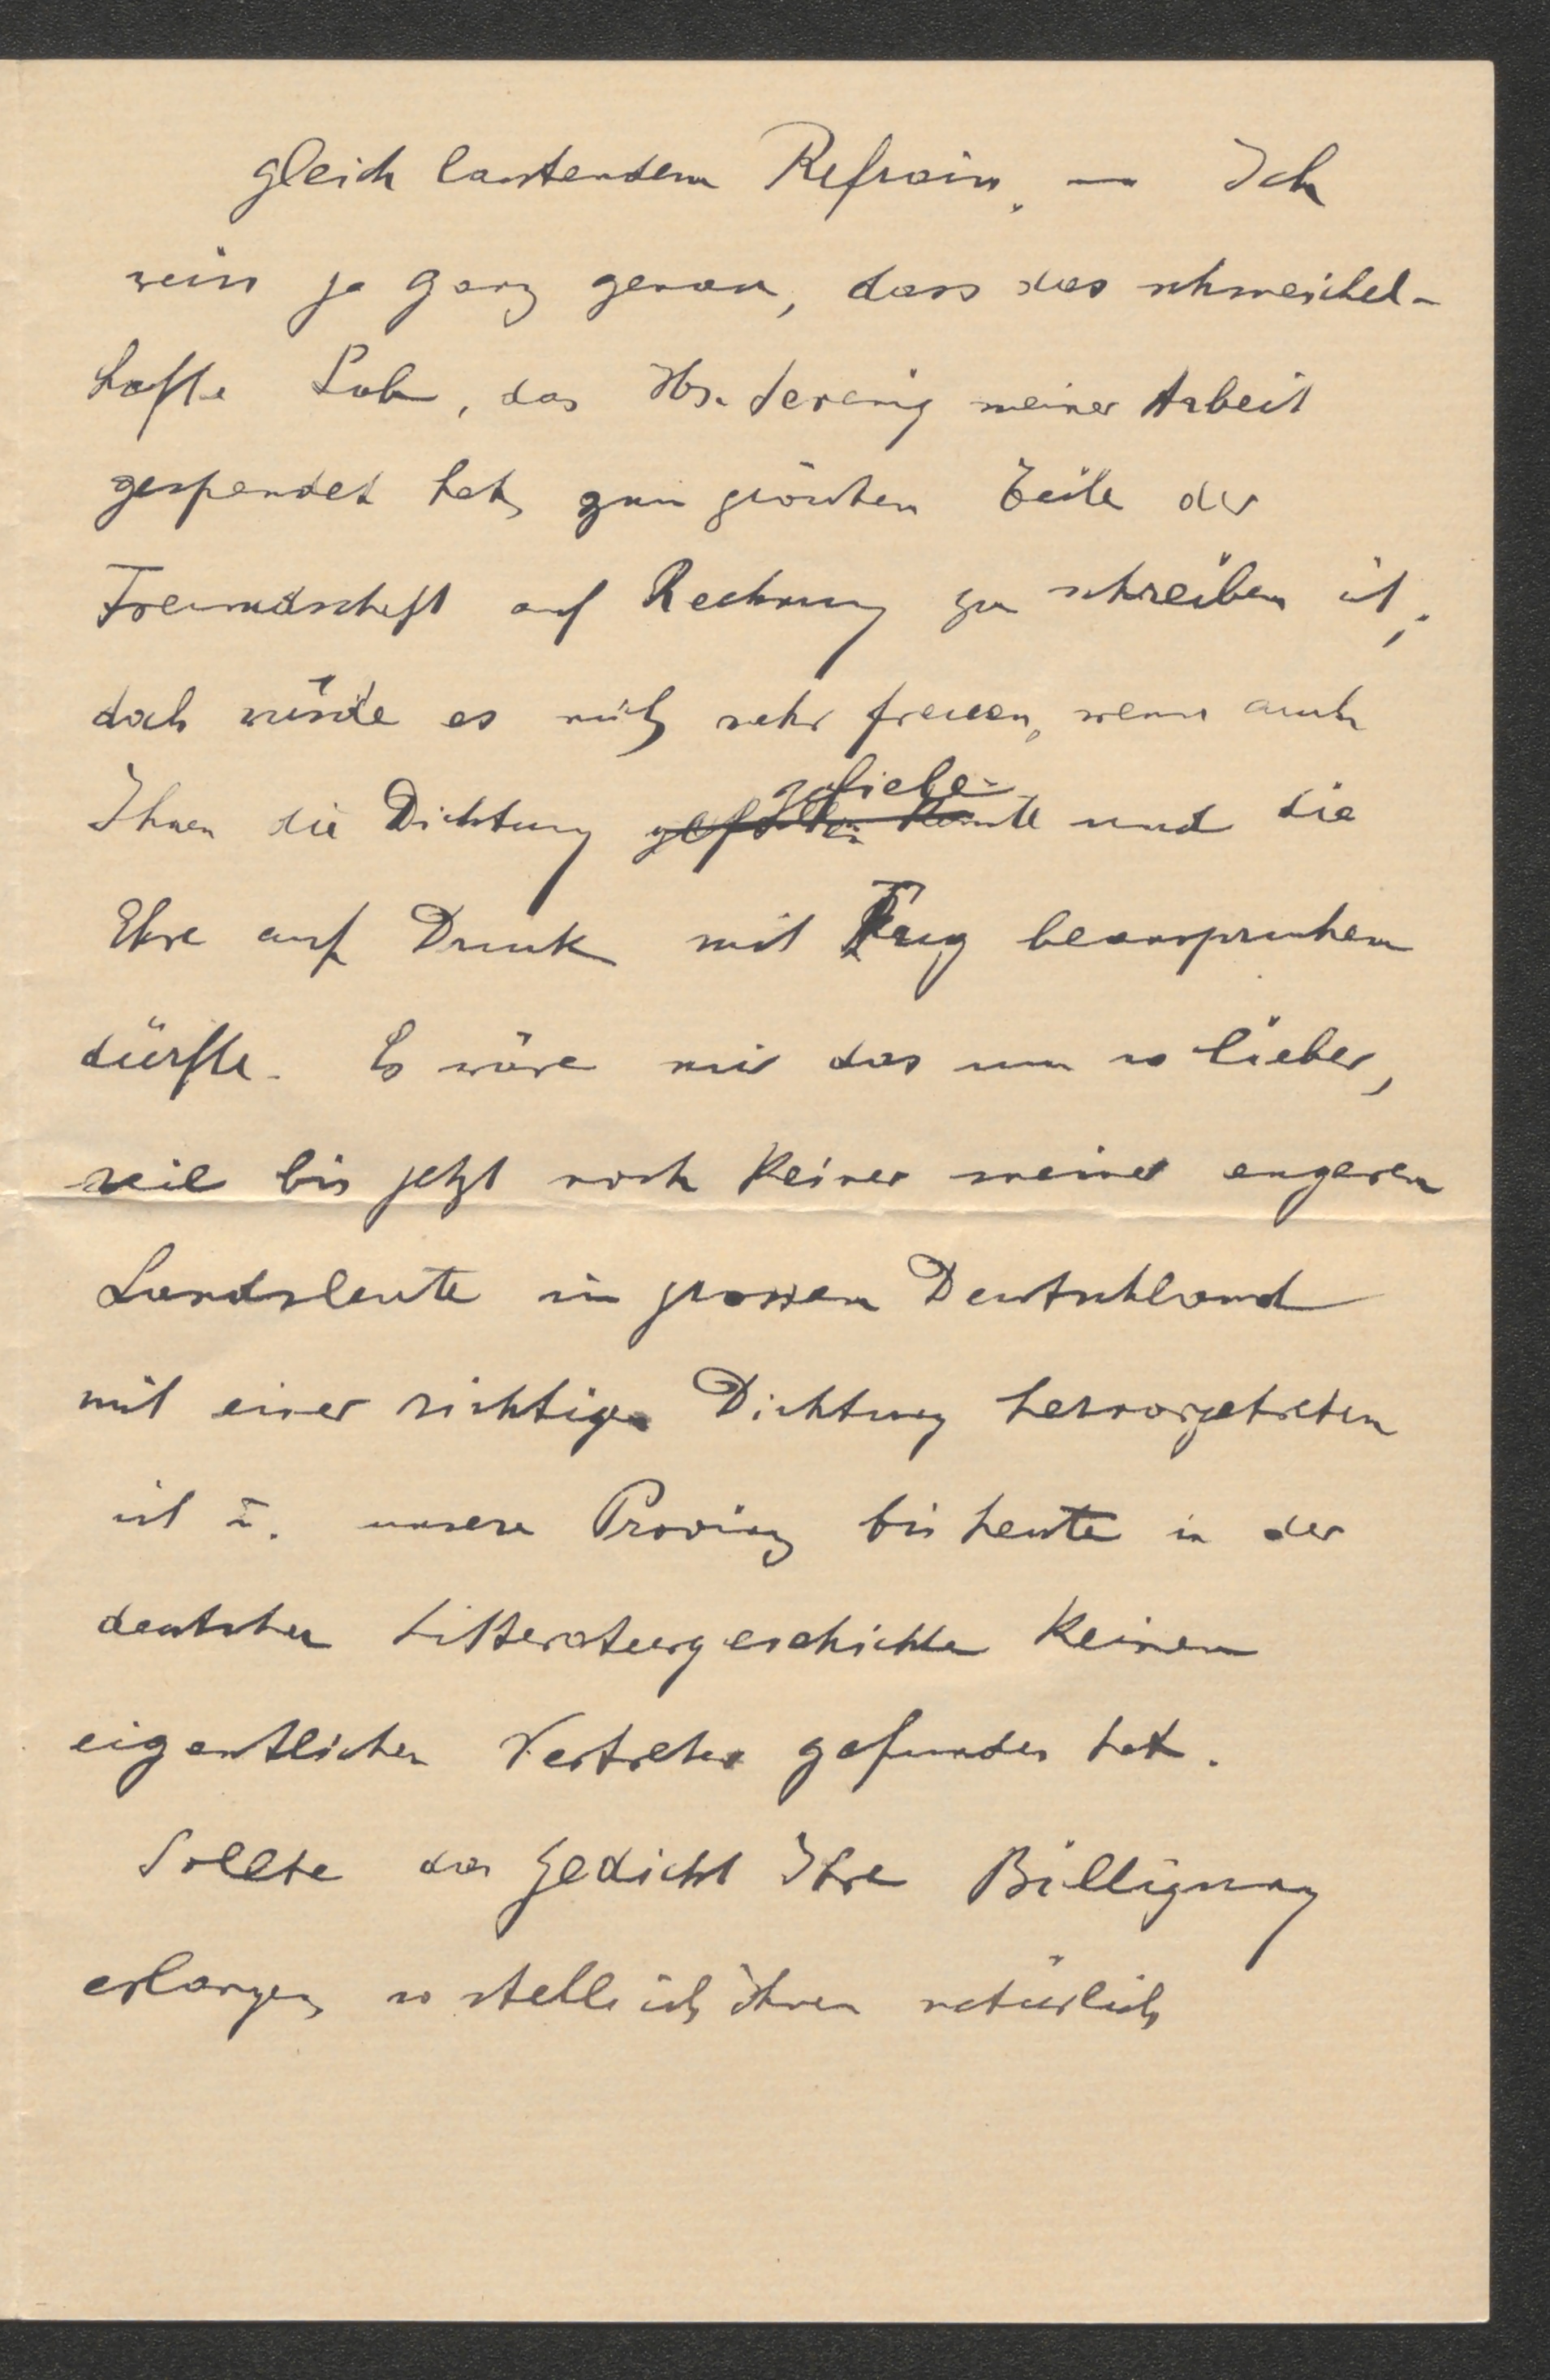 gleich lautendem Refrain. — Ich
weiss ja ganz genau, dass das schmeichel-
hafte Lob, das Hr. meiner Arbeit
gespendet hat, zum grössten Teile der
Freundschaft auf Rechnung zu schreiben ist;
doch würde es mich sehr freuen, wenn auch
gefiele
Ihnen die Dichtung gefallen könnte und die
Ehre auf Druck mit Fug beanspruchen
dürfte. Es wäre mir das um so lieber,
weil bis jetzt noch keiner meiner engeren
Landsleute im grossen Deutschland
mit einer richtigen Dichtung hervorgetreten
ist u. unsere Provinz bis heute in der
deutschen Litteraturgeschichte keinen
eigentlichen Vertreter gefunden hat.
Sollte das Gedicht Ihre Billigung
erlangen, so stelle ich Ihnen natürlich